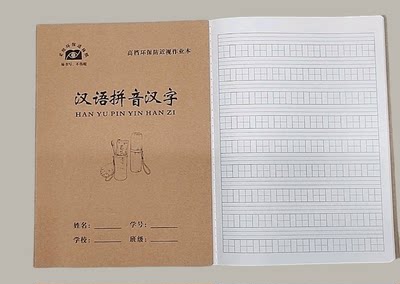 高档环保防近视作业本
汉语拼音汉字
HAN YU PIN YIN HAN ZI
姓名: 学号:
学校: 班级: